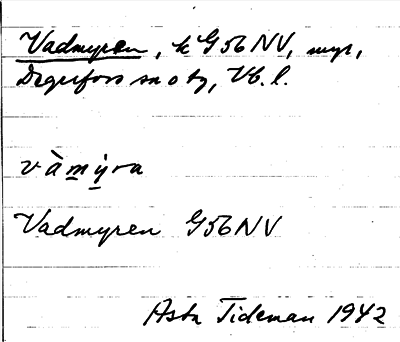 Vadmyren, k G56NV, myr,
Degerfors sn o tg, Vb. l.
vàmýra
Vadmyren G56NV
Asta Tideman 1942